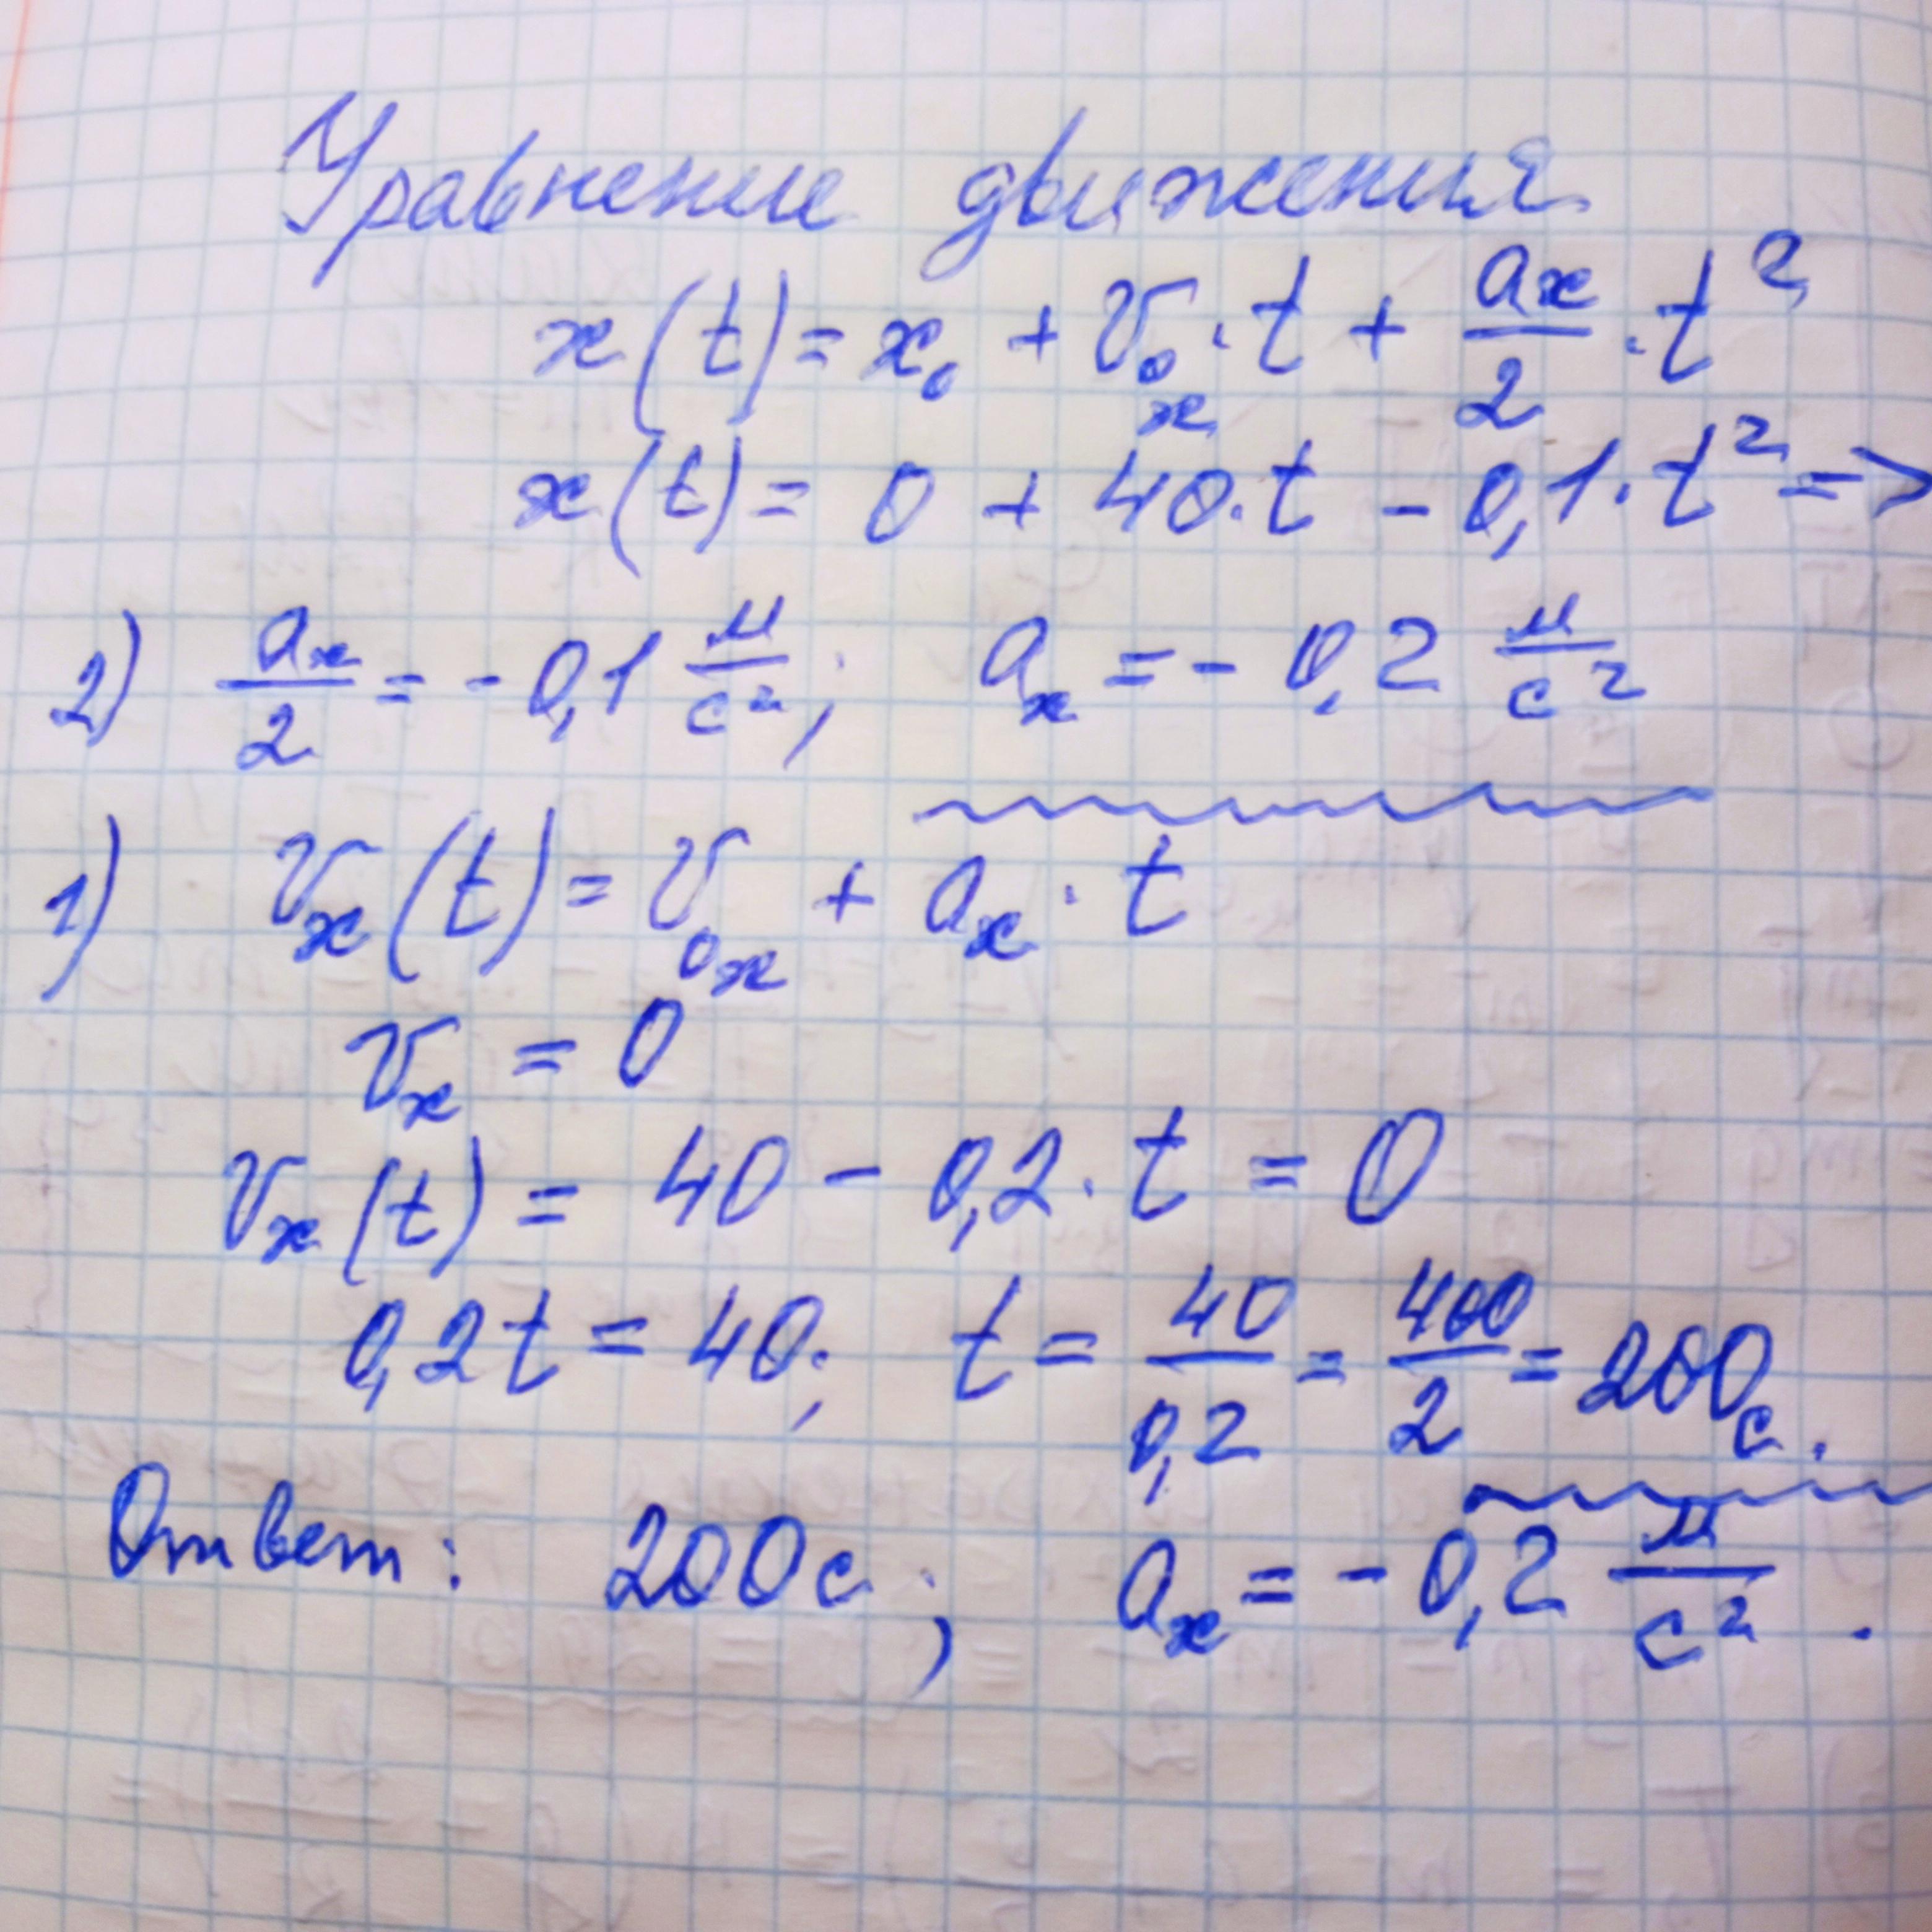 Уравнение движения
x(t) = x₀ + v₀ₓ · t + aₓ/2 · t²
x(t) = 0 + 40 · t - 0,1 · t² =>
2) aₓ/2 = - 0,1 м/с²; aₓ = - 0,2 м/с²
1) vₓ(t) = v₀ₓ + aₓ · t
vₓ = 0
vₓ(t) = 40 - 0,2 · t = 0
0,2t = 40; t = 40/0,2 = 400/2 = 200с.
Ответ: 200с; aₓ = - 0,2 м/с².